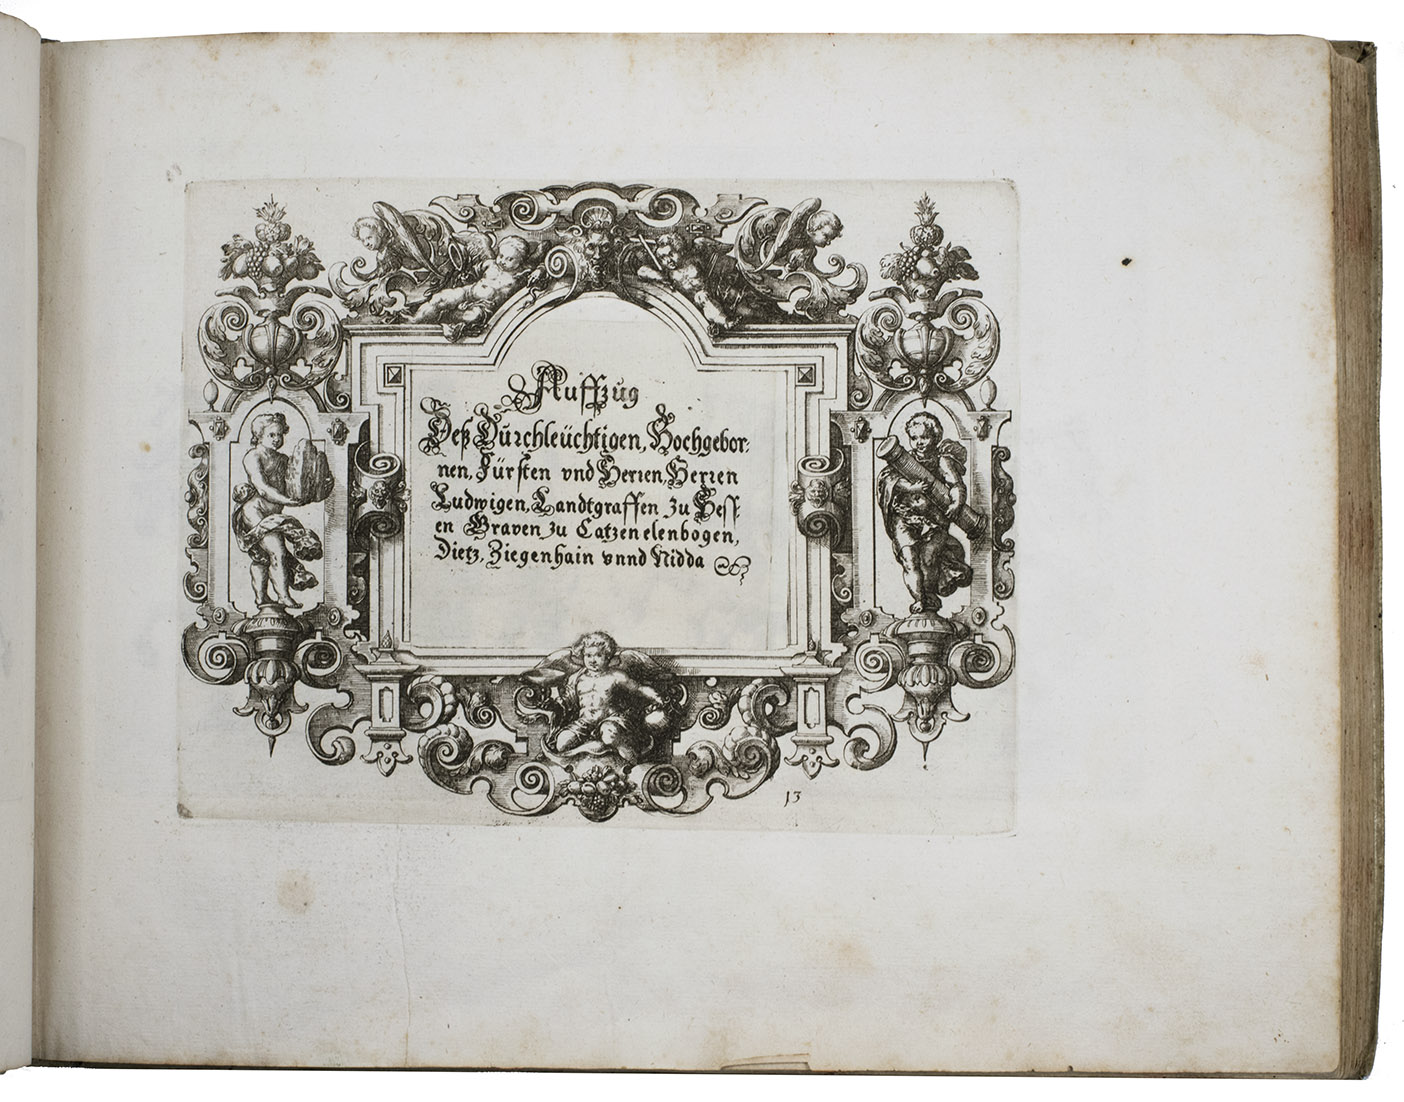 Auffzug
Deß Durchleüchtigen, Hochgebor:
nen, Fürsten vnd Herren, Herren
Ludwigen, Landtgraffen zu Hess:
en Graven zu Catzenelenbogen,
Dietz, Ziegenhain vnnd Nidda
13